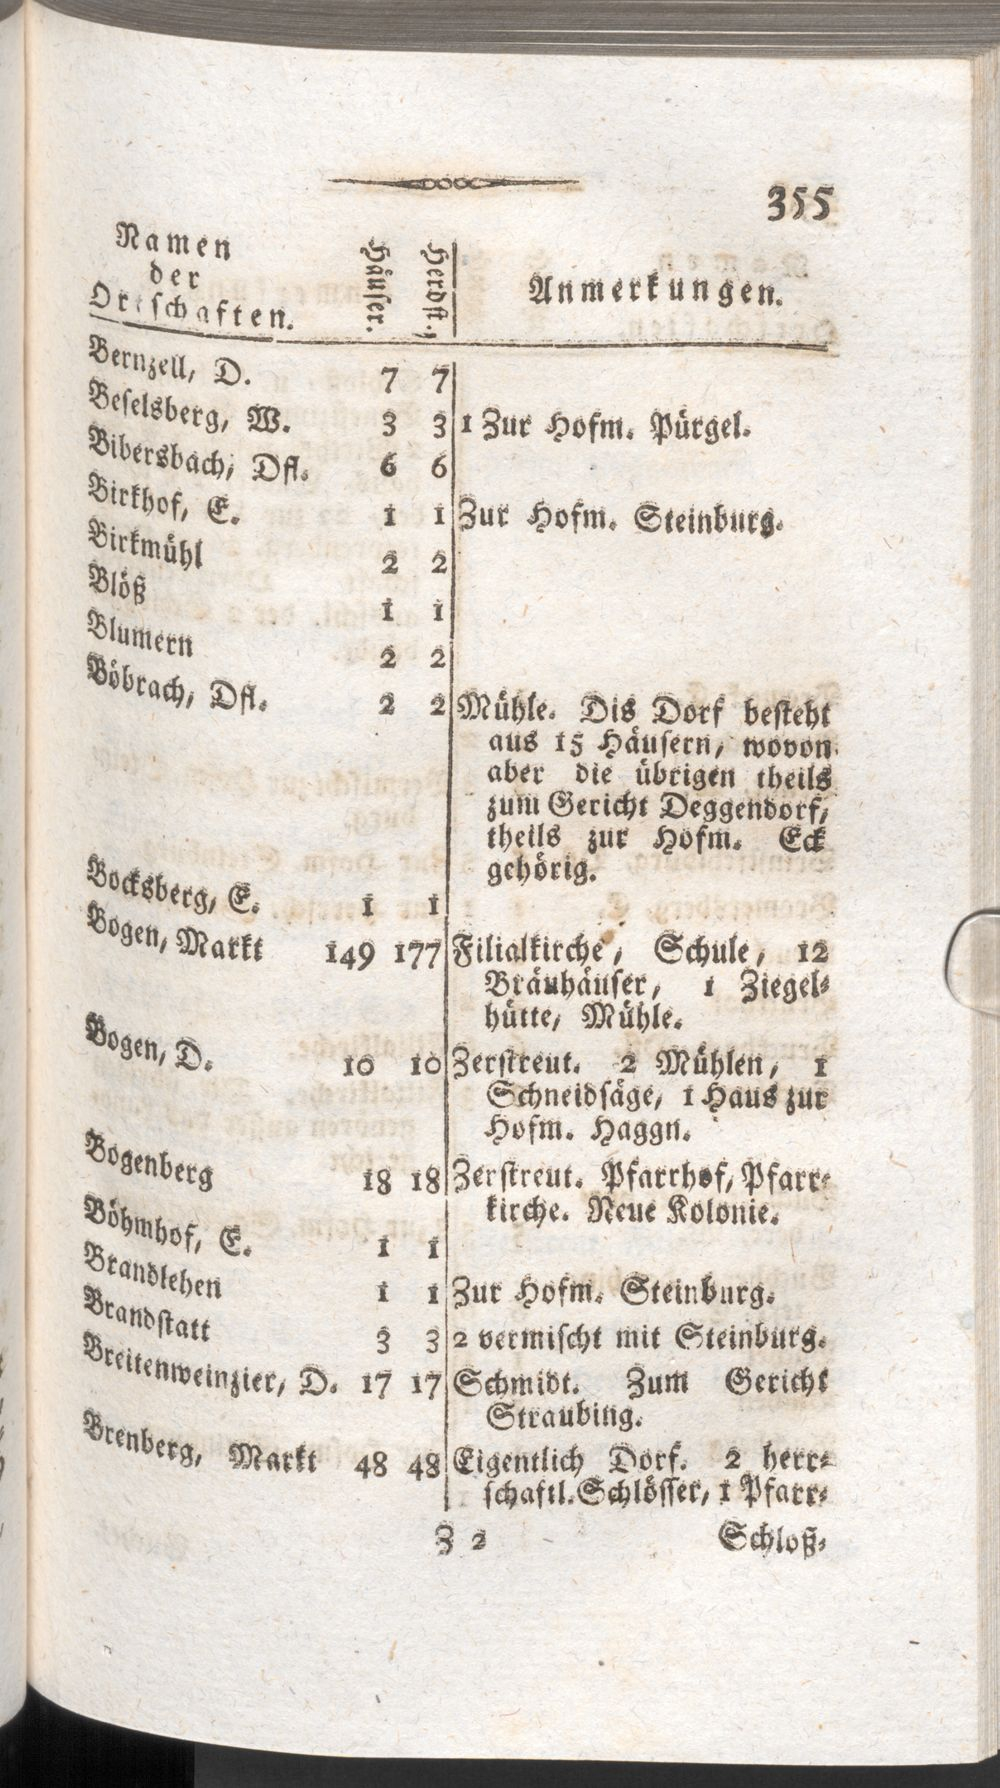 355
Namen
der
Ortschaften.
Häuser.
Herdst.
Anmerkungen.
Bernzell, D. 7 7
Beselsberg, W. 3 3 1 Zur Hofm. Pürgel.
Bibersbach, Dfl. 6 6
Birkhof, E. 1 1 Zur Hofm. Steinburg.
Birkmühl 2 2
Blöß 1 1
Blumern 2 2
Böbrach, Dfl. 2 2 Mühle. Dis Dorf besteht
aus 15 Häusern, wovon
aber die übrigen theils
zum Gericht Deggendorf,
theils zur Hofm. Eck
gehörig.
Bocksberg, E. 1 1
Bogen, Markt 149 177 Filialkirche, Schule, 12
Bräuhäuser, 1 Ziegel-
hütte, Mühle.
Bogen, D. 10 10 Zerstreut. 2 Mühlen, 1
Schneidsäge, 1 Haus zur
Hofm. Haggn.
Bogenberg 18 18 Zerstreut. Pfarrhof, Pfarr-
kirche. Neue Kolonie.
Böhmhof, E. 1 1
Brandlehen 1 1 Zur Hofm. Steinburg.
Brandstatt 3 3 2 vermischt mit Steinburg.
Breitenweinzier, D. 17 17 Schmidt. Zum Gericht
Straubing.
Brenberg, Markt 48 48 Eigentlich Dorf. 2 herr-
schaftl. Schlösser, 1 Pfarr-
Z 2 Schloß-